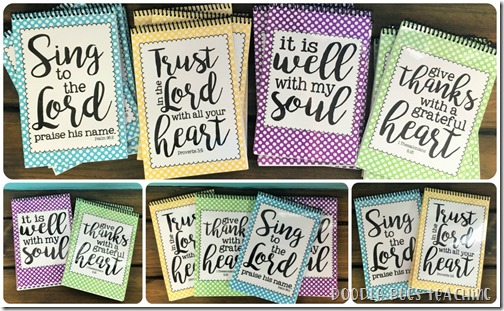 Sing
to the
Lord
praise his name.
Psalm 96:2
Trust
in the
Lord
with all your
heart
Proverbs 3:5
it is
well
with my
soul
give
thanks
with a
grateful
heart
1 Thessalonians
5:18
it is
well
with my
soul
give
thanks
with a
grateful
heart
Trust
in the
Lord
heart
give
thanks
with
grateful
heart
Sing
to the
Lord
praise his name.
it is
well
with my
soul
Sing
to the
Lord
praise his name.
Trust
in the
Lord
with all your
heart
DOODLE BUGS TEACHING